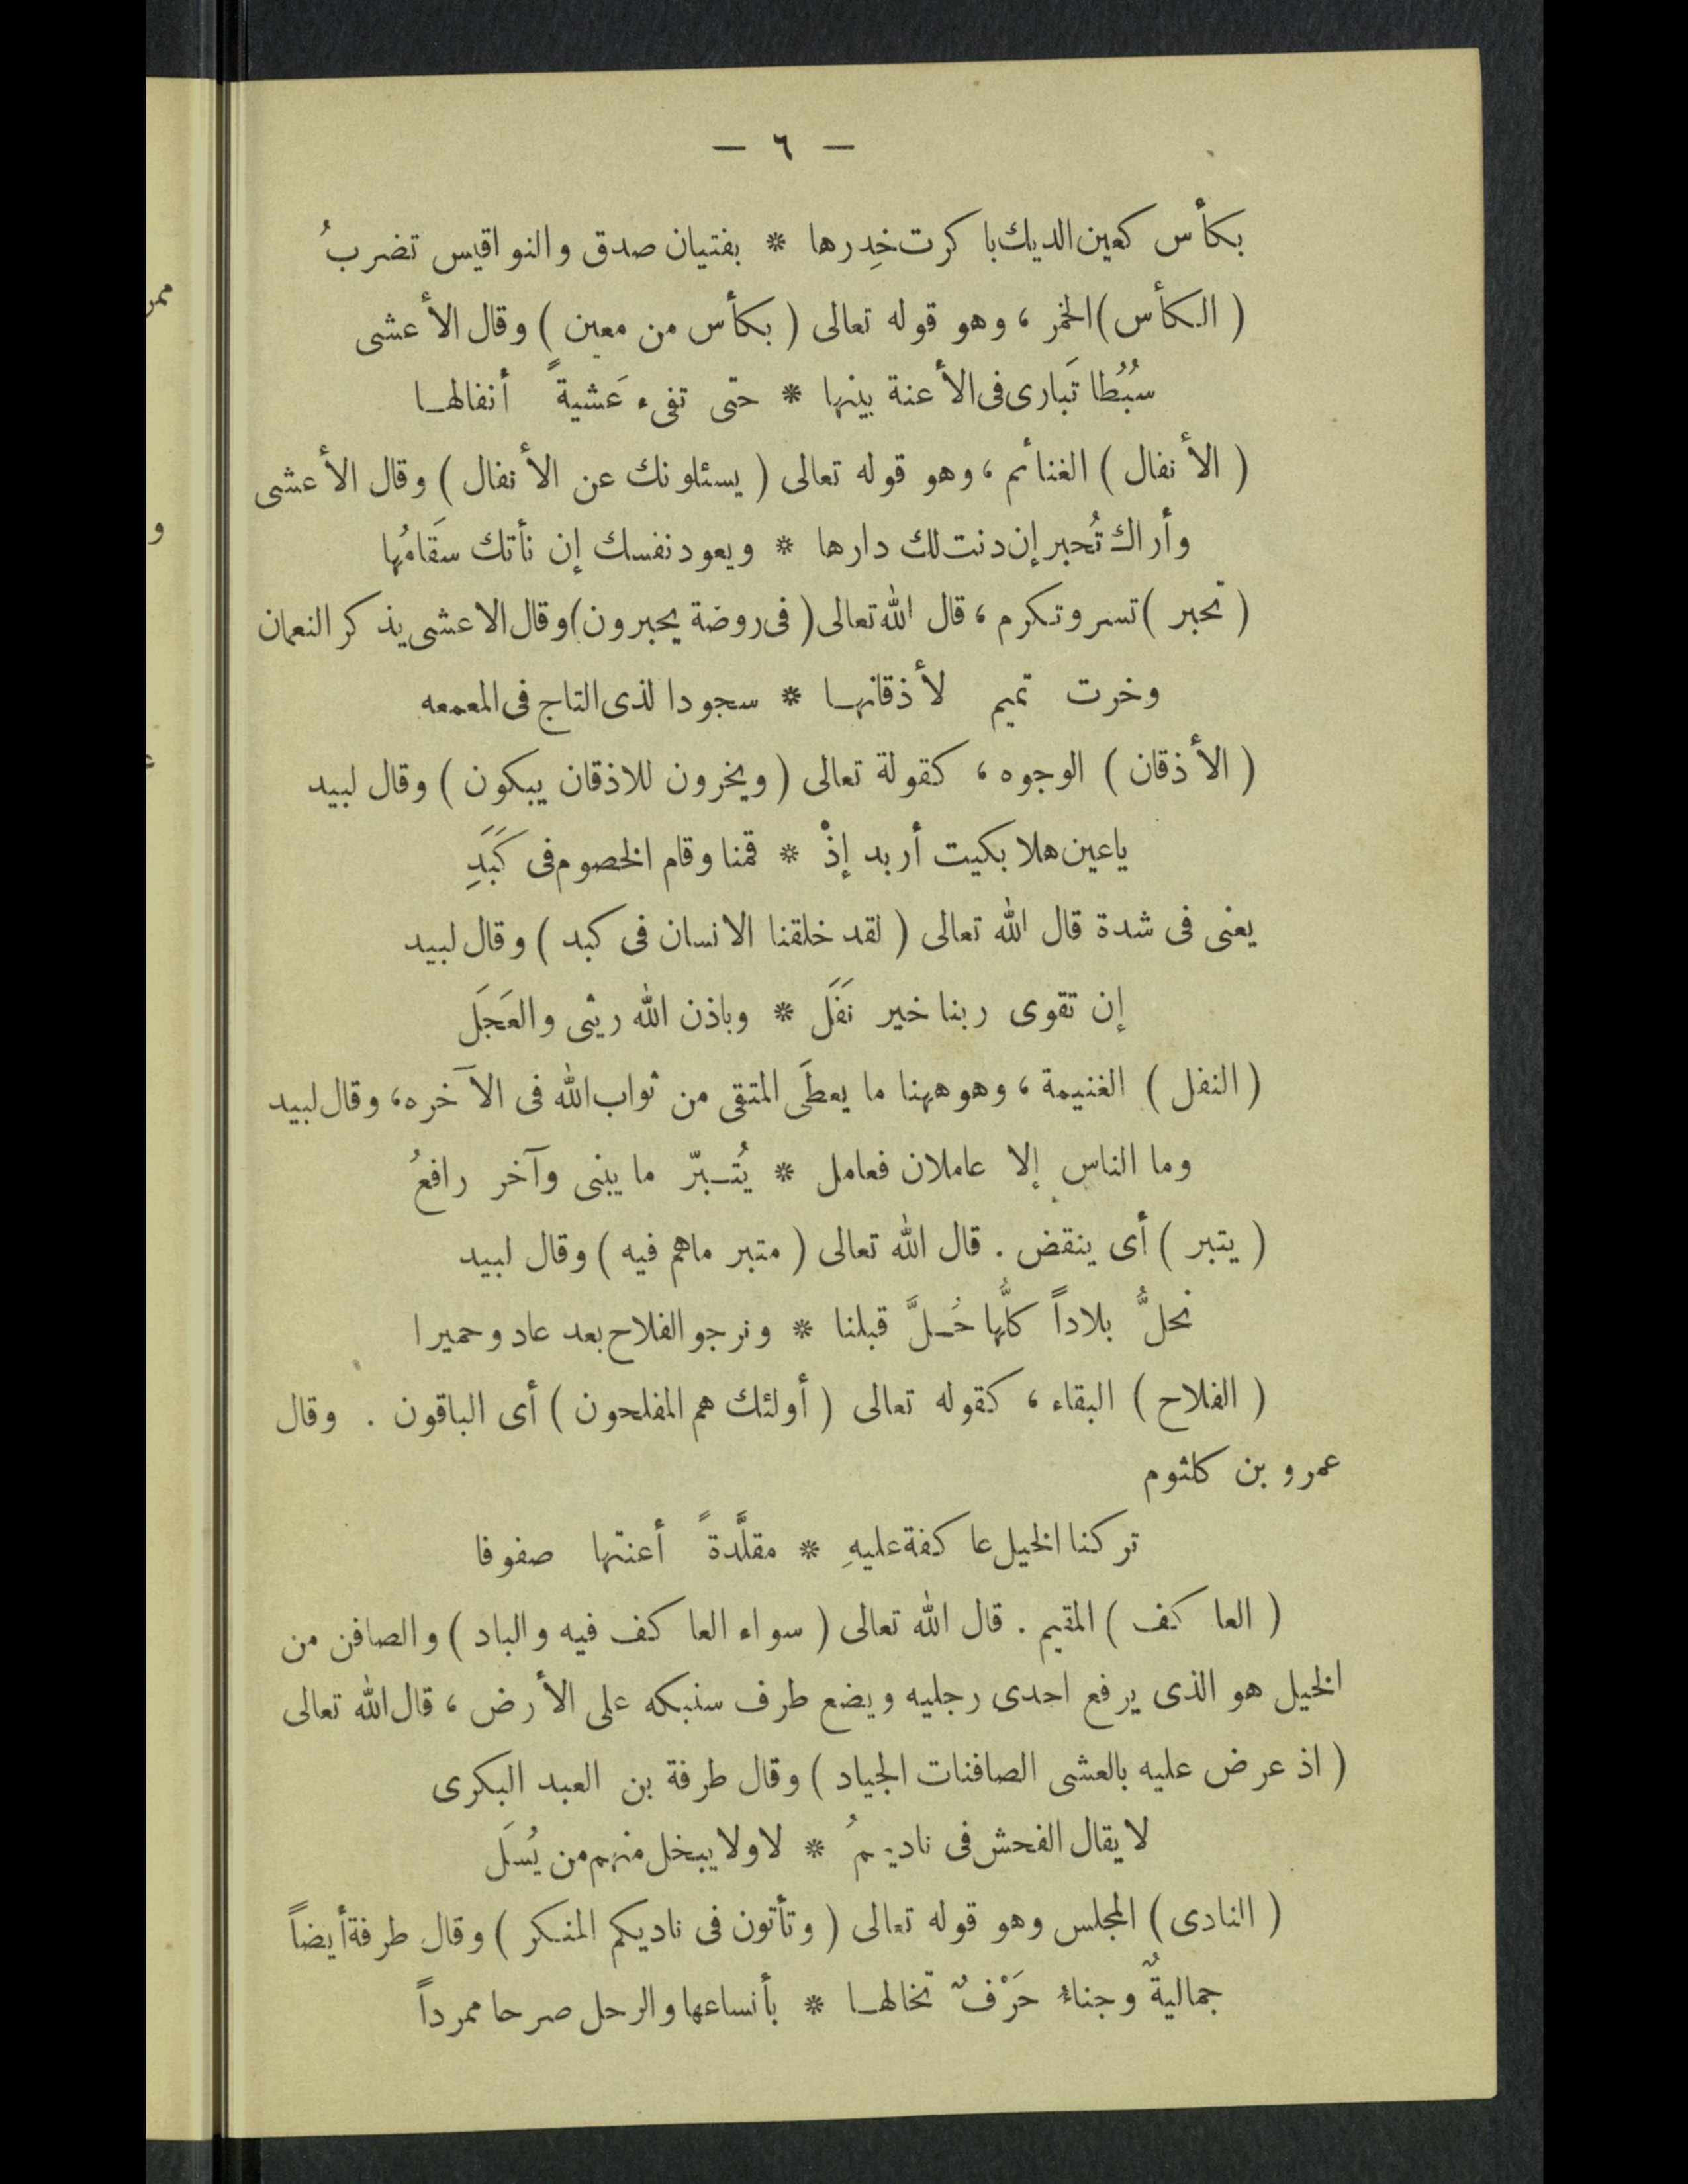 — ٦ —
بكأس كعين الديك باكرت خِدرها * بفتيان صدق والنواقيس تضربُ
( الكأس ) الخمر ، وهو قوله تعالى ( بكأس من معين ) وقال الأعشى
سُبُطا تَبارى فى الأعنة بينها * حتى تفىء عَشيةً أنفالها
( الأنفال ) الغنائم ، وهو قوله تعالى ( يسئلونك عن الأنفال ) وقال الأعشى
وأراك تُحبر إن دنت لك دارها * ويعود نفسك إن نأتك سَقَامُها
( تحبر ) تسر وتكرم ، قال الله تعالى ( فى روضة يحبرون ) وقال الاعشى يذكر النعمان
وخرت تميم لأذقانها * سجودا لذى التاج فى المعمعه
( الأذقان ) الوجوه ، كقولة تعالى ( ويخرون للاذقان يبكون ) وقال لبيد
ياعين هلا بكيت أربد إذْ * قمنا وقام الخصوم فى كَبَدِ
يعنى فى شدة قال الله تعالى ( لقد خلقنا الانسان فى كبد ) وقال لبيد
إن تقوى ربنا خير نَفَل * وباذن الله ريثى والعَجَل
( النفل ) الغنيمة ، وهو ههنا ما يعطَى المتقى من ثواب الله فى الآخره ، وقال لبيد
وما الناس إلا عاملان فعامل * يُتبرّ ما يبنى وآخر رافعُ
( يتبر ) أى ينقض . قال الله تعالى ( متبر ماهم فيه ) وقال لبيد
نحلُّ بلاداً كلُّها حُلَّ قبلنا * ونرجو الفلاح بعد عاد وحميرا
( الفلاح ) البقاء ، كقوله تعالى ( أولئك هم المفلحون ) أى الباقون . وقال
عمرو بن كلثوم
تركنا الخيل عاكفة عليهِ * مقلَّدةً أعنتها صفوفا
( العاكف ) المقيم . قال الله تعالى ( سواء العاكف فيه والباد ) والصافن من
الخيل هو الذى يرفع احدى رجليه ويضع طرف سنبكه على الأرض ، قال الله تعالى
( اذ عرض عليه بالعشى الصافنات الجياد ) وقال طرفة بن العبد البكرى
لا يقال الفحش فى ناديهمُ * لا ولا يبخل منهم من يُسَل
( النادى ) المجلس وهو قوله تعالى ( وتأتون فى ناديكم المنكر ) وقال طرفة أيضاً
جماليةٌ وجناءُ حَرْفٌ تخالها * بأنساعها والرحل صرحا ممرداً